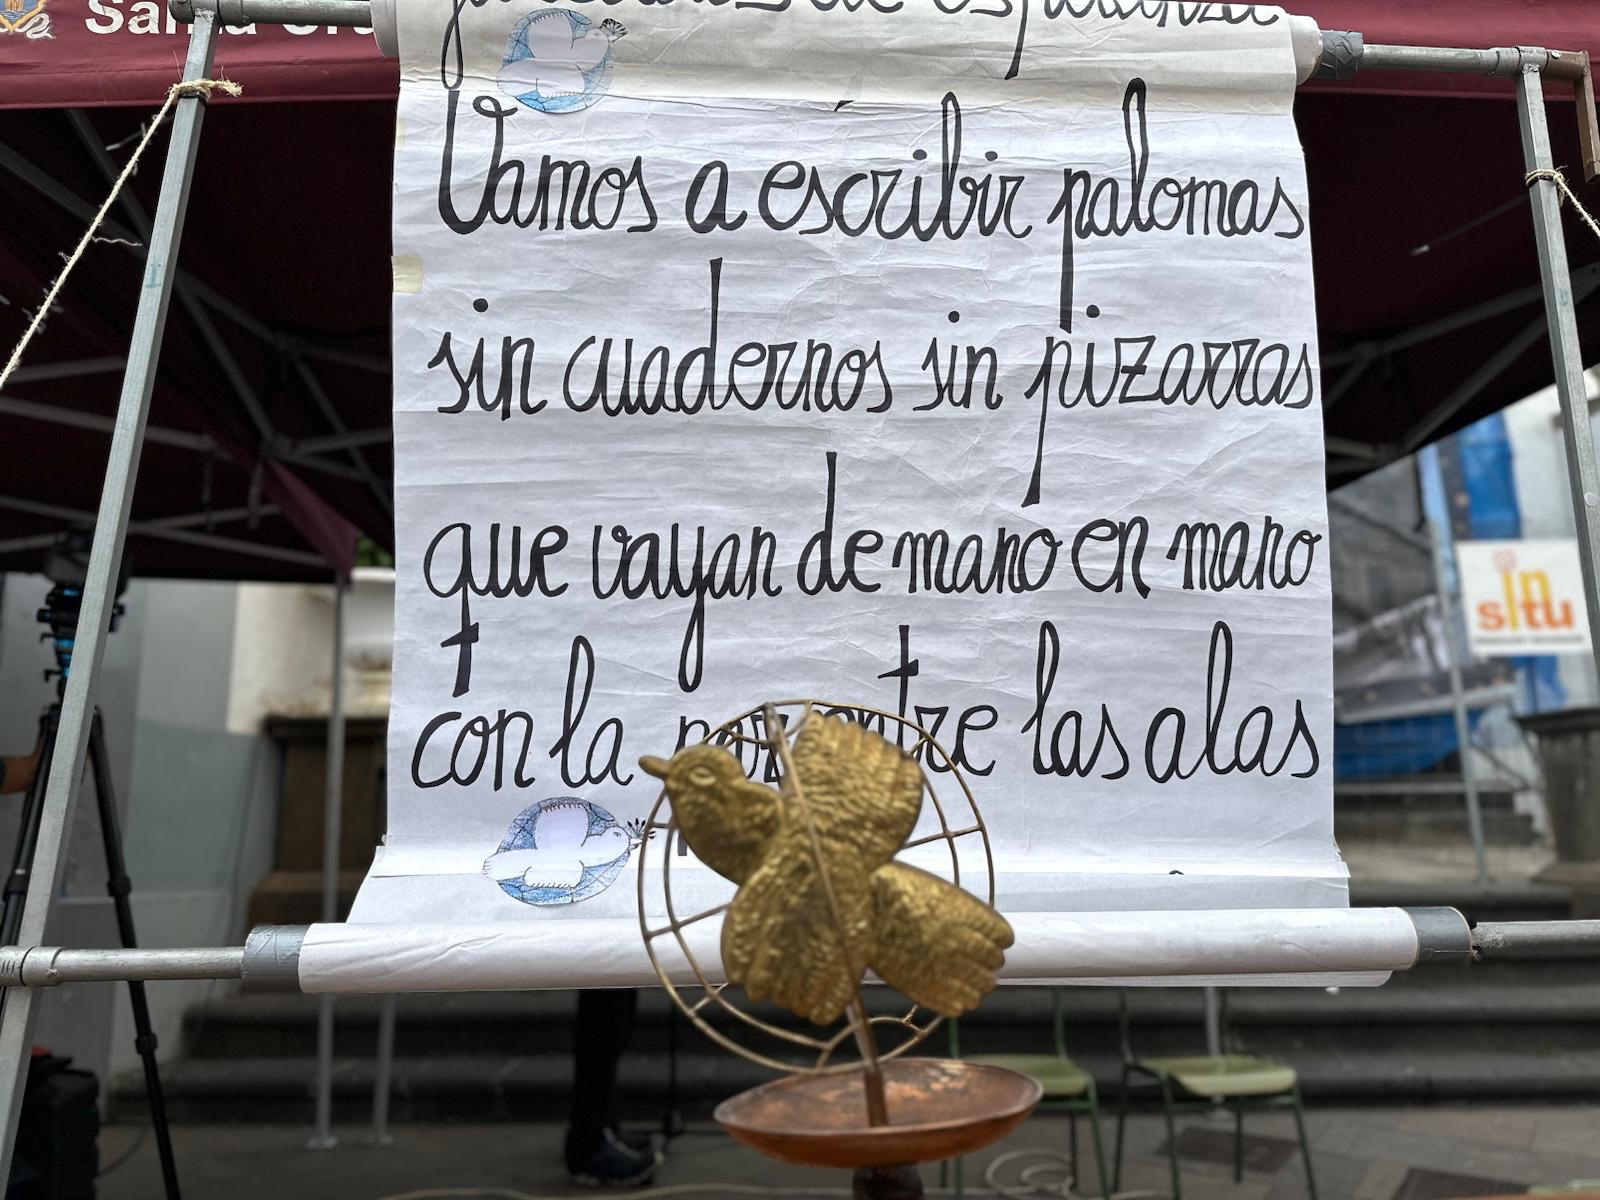 Santa
de esperanza
Vamos a escribir palomas
sin cuadernos sin pizarras
que vayan de mano en mano
con la paz entre las alas
in
situ